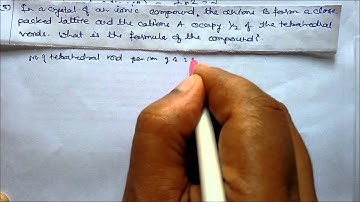 5) In a crystal of an ionic compound, the anions B form a close
packed lattice and the cations A occupy 1/2 of the tetrahedral
voids. What is the formula of the compound?
No of tetrahedral void per ion of B = 2